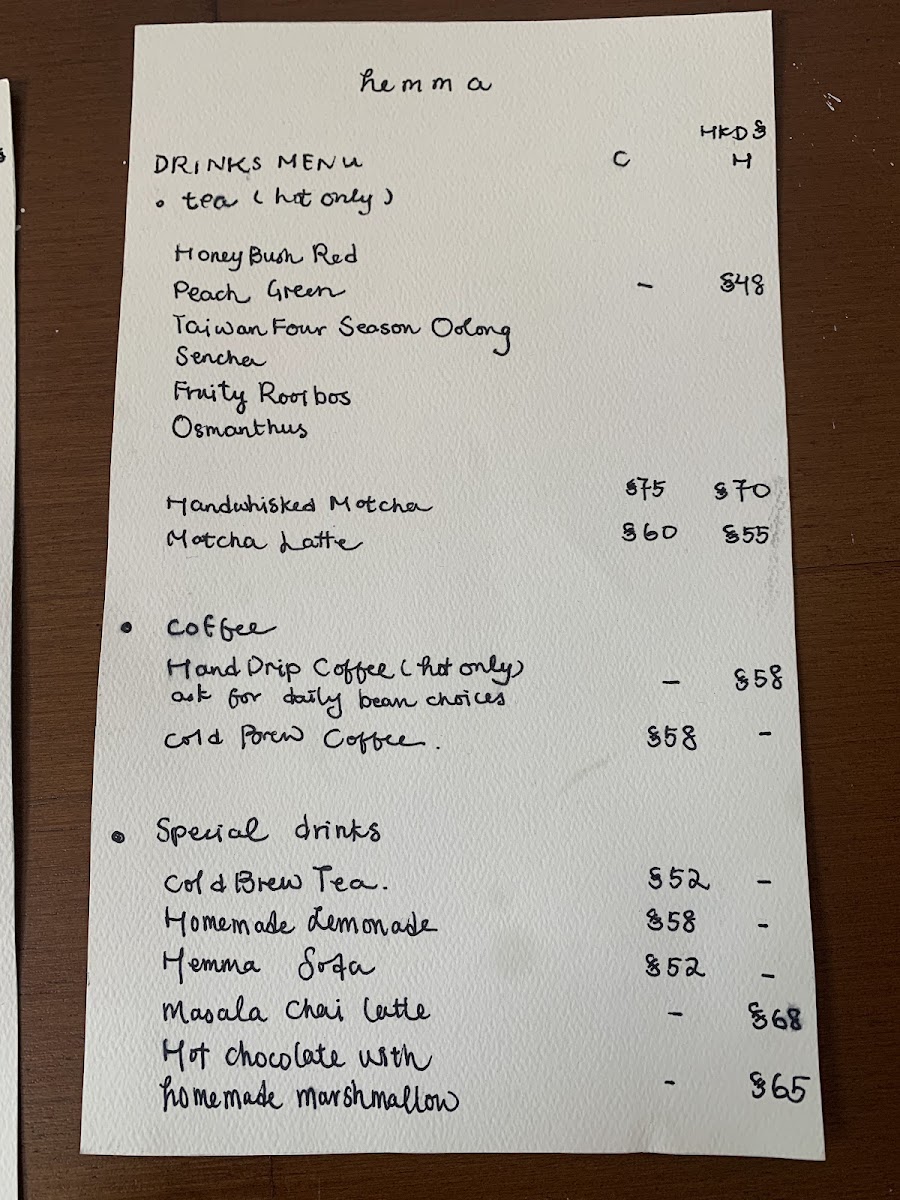 hemma
HKD $
DRINKS MENU C H
• tea (hot only)
Honey Bush Red
Peach Green - $48
Taiwan Four Season Oolong
Sencha
Fruity Rooibos
Osmanthus
Handwhisked Matcha $75 $70
Matcha Latte $60 $55
• coffee
Hand Drip Coffee (hot only) - $58
ask for daily bean choices
Cold Brew Coffee. $58 -
• Special drinks
Cold Brew Tea. $52 -
Homemade Lemonade $58 -
Hemma Soda $52 -
Masala Chai latte - $68
Hot chocolate with
homemade marshmallow - $65